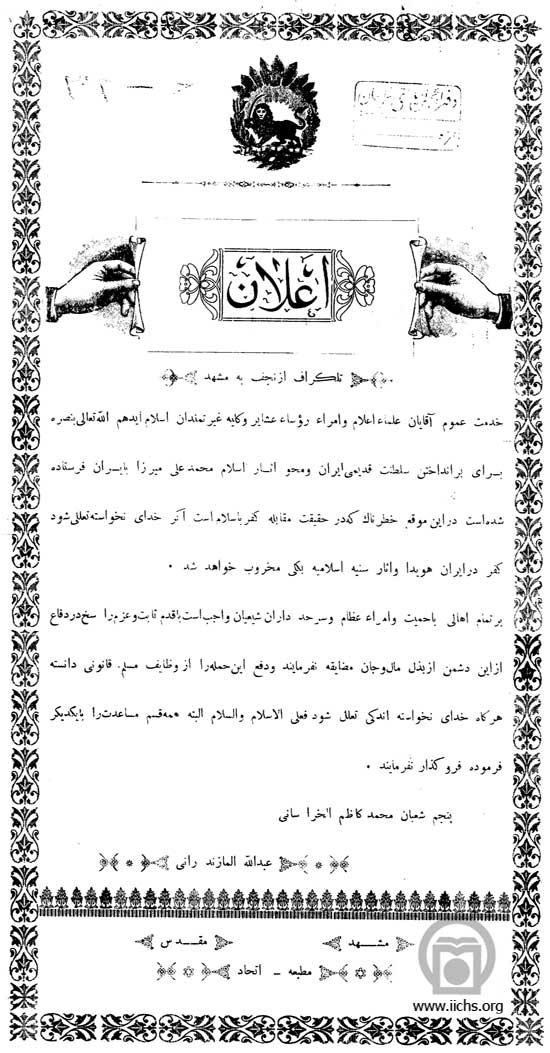 اعلان
تلکراف از نجف به مشهد
خدمت عموم آقایان علماء اعلام وامراء رؤساء عشایر وکلیه غیرتمندان اسلام ایدهم الله تعالی بنصره
برای برانداختن سلطنت قدیمی ایران ومحو اثار اسلام محمد علی میرزا بایران فرستاده
شده است دراین موقع خطرناك که در حقیقت مقابله کفر باسلام است اکر خدای نخواسته تعلل شود
کفر درایران هویدا واثار سنیه اسلامیه بکلی مخروب خواهد شد ٠
برتمام اهالی باحمیت وامراء عظام وسرحد داران شیعیان واجب است باقدم ثابت وعزم راسخ در دفاع
ازاین دشمن ازبذل مال وجان مضایقه نفرمایند ودفع این حمله را از وظایف مسلم قانونی دانسته
هرکاه خدای نخواسته اندکی تعلل شود فعلی الاسلام والسلام البته همه قسم مساعدت را بایکدیکر
فرموده فروکذار نفرمایند ٠
پنجم شعبان محمد کاظم الخراسانی
عبدالله المازندرانی
مشهد مقدس
مطبعه - اتحاد
www.iichs.org